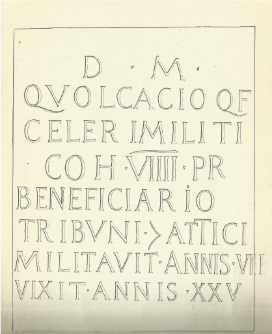 D · M ·
QVOLCACIO QF
CELER IMILITI
COH · VIIII · PR
BENEFICIARIO
TRIBVNI · > ATTICI
MILITAVIT · ANNIS · VIII
VIXIT · ANNIS · XXV